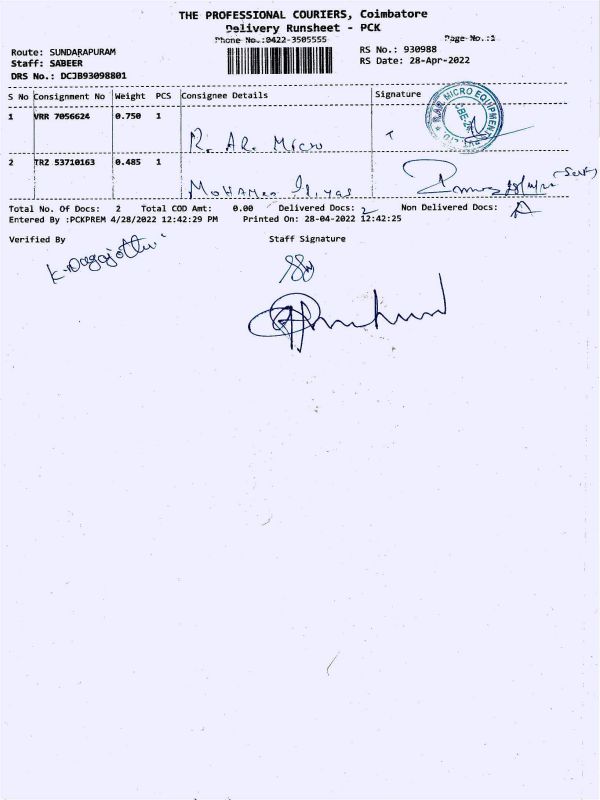 THE PROFESSIONAL COURIERS, Coimbatore
Delivery Runsheet - PCK
Phone No.:0422-3505555 Page No.:1
Route: SUNDARAPURAM RS No.: 930988
Staff: SABEER RS Date: 28-Apr-2022
DRS No.: DCJB93098801
S No Consignment No Weight PCS Consignee Details Signature
1 VRR 7056624 0.750 1
R. AR. Micro
MICRO EQUIPMENT
2 TRZ 53710163 0.485 1
Mohamed Iliyas (Self)
Total No. Of Docs: 2 Total COD Amt: 0.00 Delivered Docs: 2 Non Delivered Docs:
Entered By :PCKPREM 4/28/2022 12:42:29 PM Printed On: 28-04-2022 12:42:25
Verified By Staff Signature